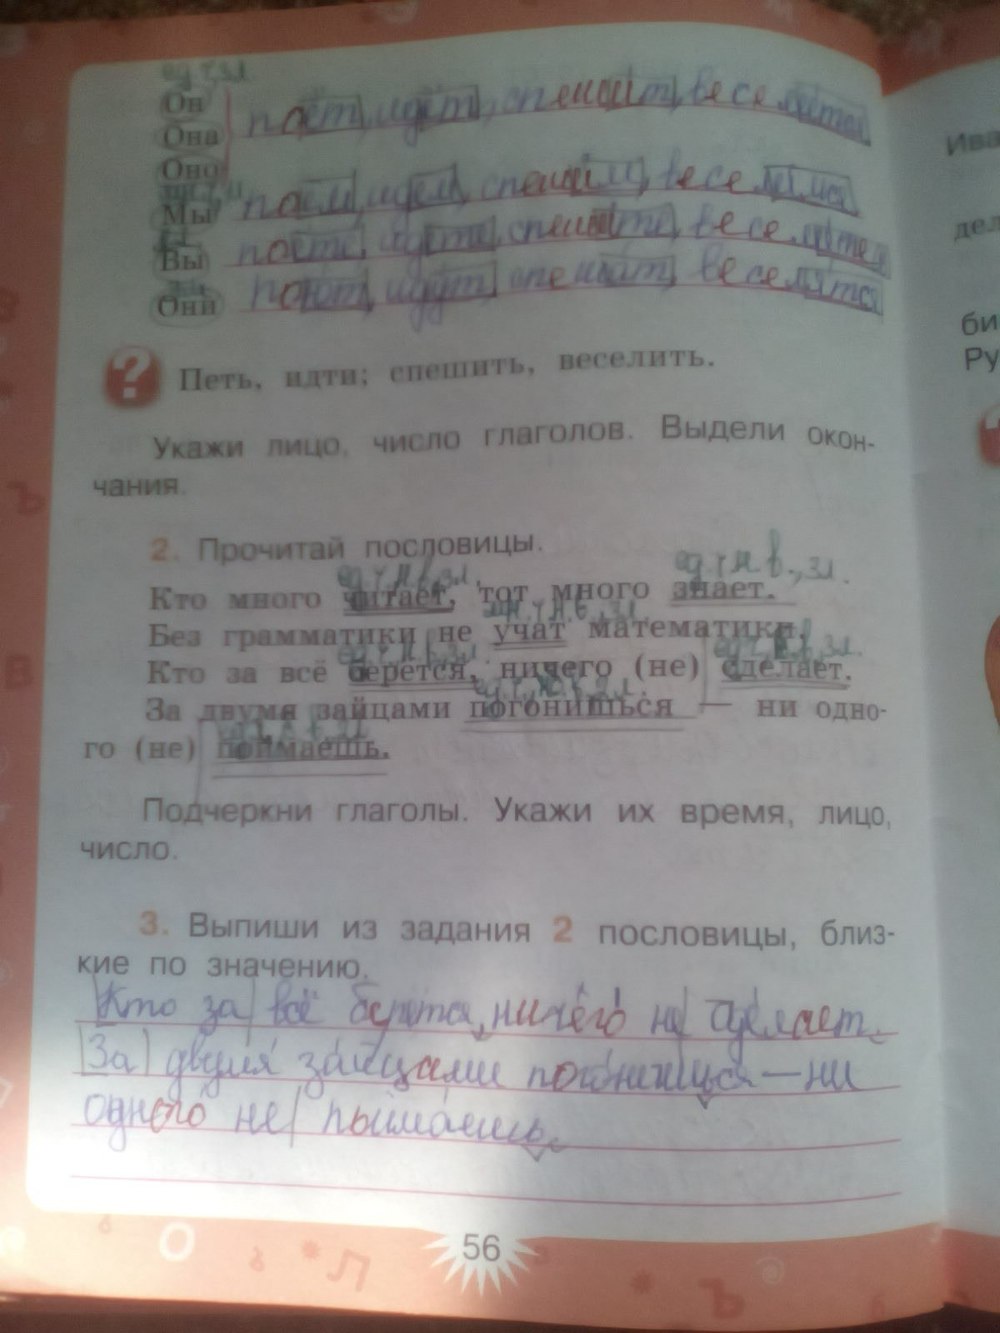 ед.ч., 3 л.
Он поёт, идёт, спешит, веселится
Она
Оно
Мы поём, идём, спешим, веселимся
Вы поёте, идёте, спешите, веселитесь
Они поют, идут, спешат, веселятся
? Петь, идти; спешить, веселить.
Укажи лицо, число глаголов. Выдели окон-
чания.
2. Прочитай пословицы.
ед.ч., н.в., 3 л. ед.ч., н.в., 3 л.
Кто много читает, тот много знает.
мн.ч., н.в., 3 л.
Без грамматики не учат математики.
Кто за всё берётся, ничего (не) сделает.
За двумя зайцами погонишься — ни одно-
го (не) поймаешь.
Подчеркни глаголы. Укажи их время, лицо,
число.
3. Выпиши из задания 2 пословицы, близ-
кие по значению.
Кто за всё берётся, ничего не сделает.
За двумя зайцами погонишься — ни
одного не пыймаешь.
56
Ива
дел
би
Ру